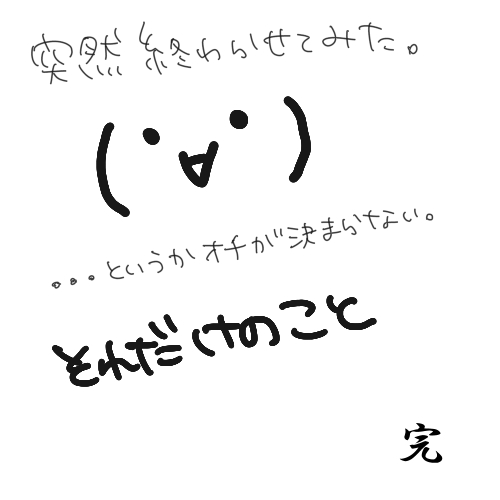 突然終わらせてみた。
(˙∀˙)
...というかオチが決まらない。
それだけのこと
完